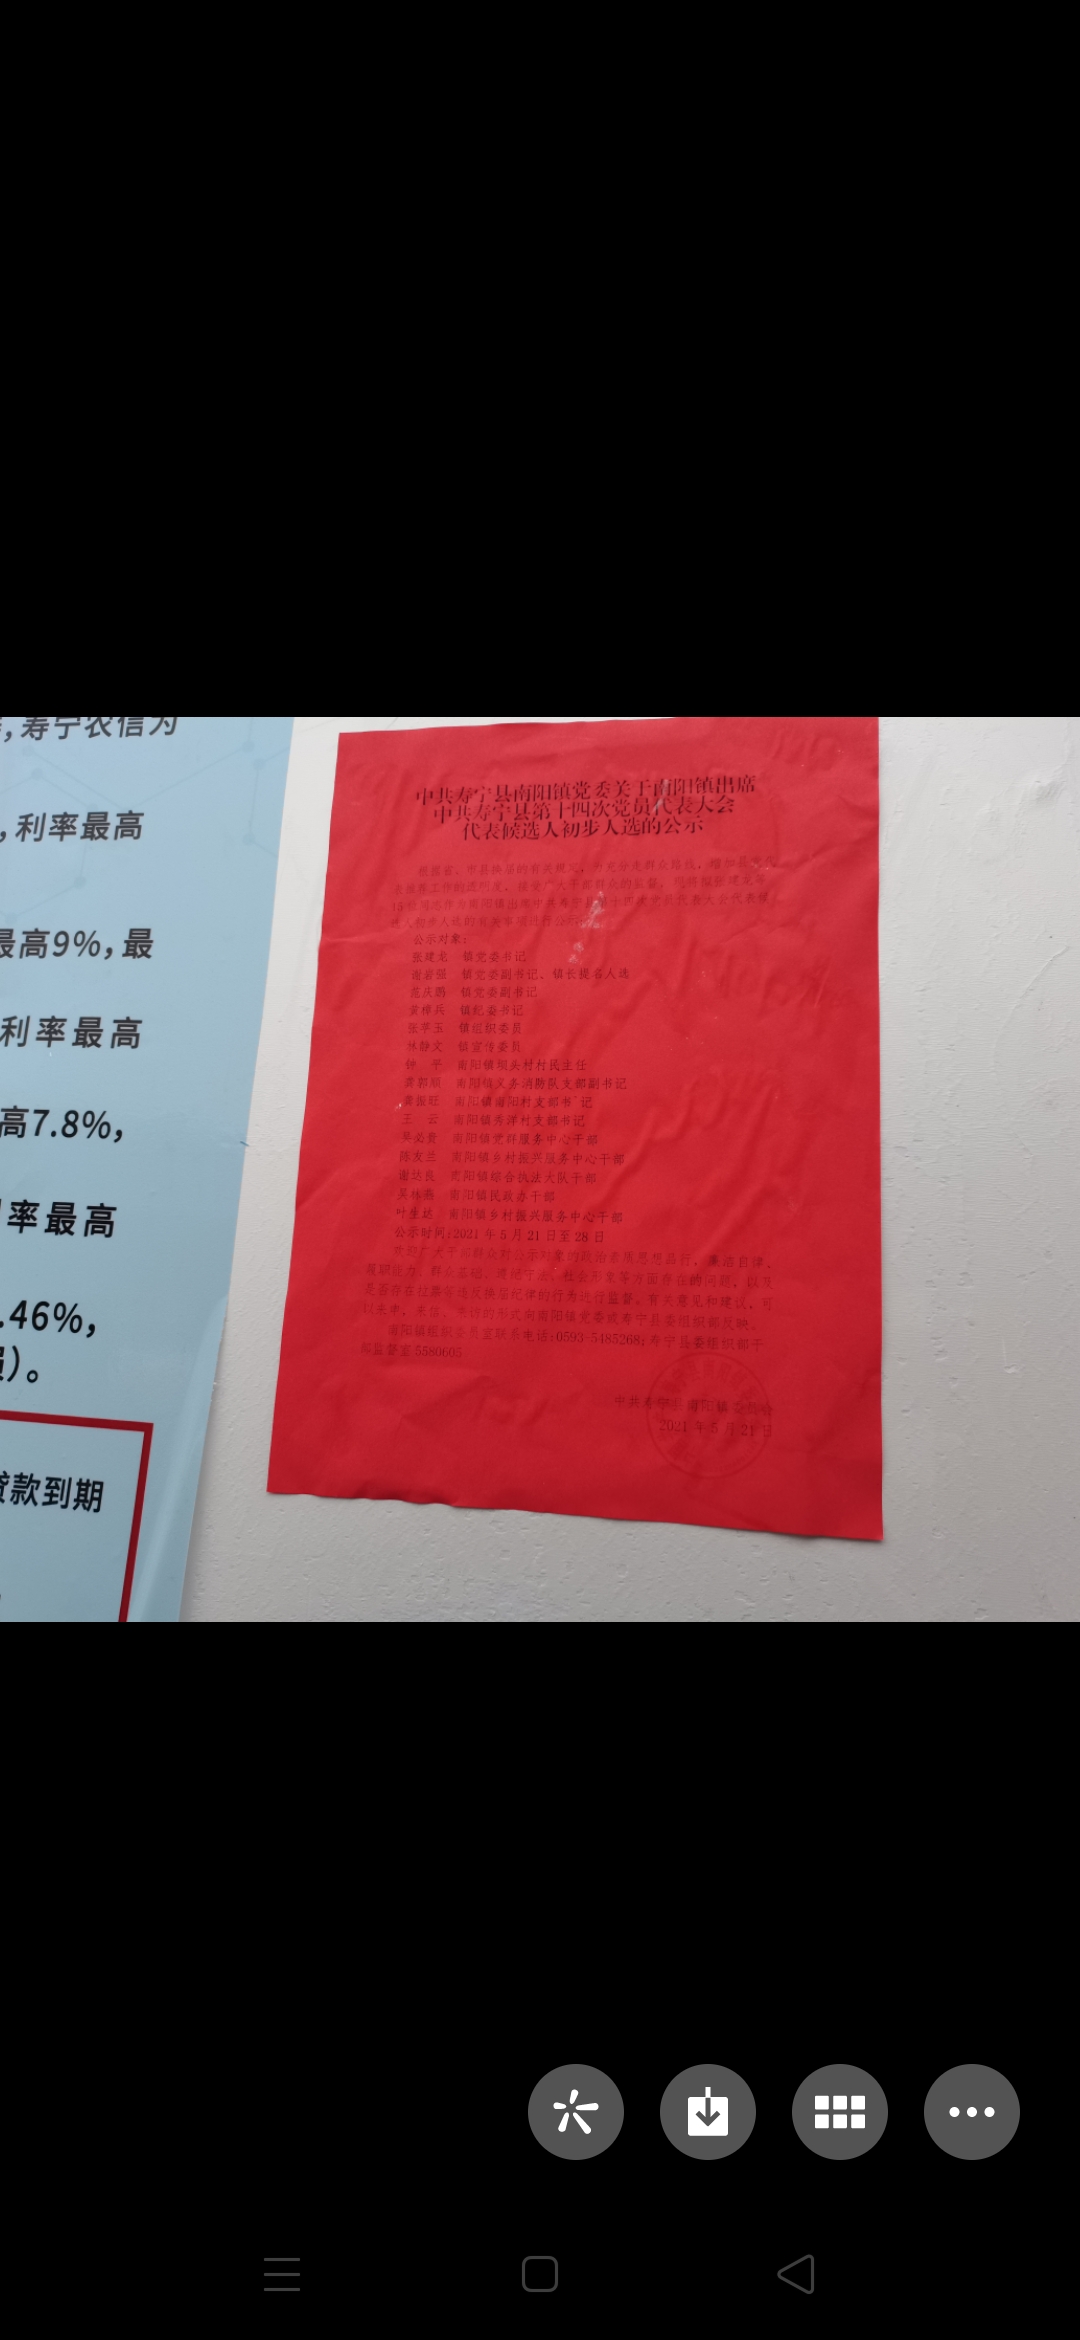 ，寿宁农信为
，利率最高
最高9%，最
利率最高
高7.8%，
率最高
.46%，
）。
贷款到期
中共寿宁县南阳镇党委关于南阳镇出席
中共寿宁县第十四次党员代表大会
代表候选人初步人选的公示
根据省、市县换届的有关规定，为充分走群众路线，增加县党代
表推荐工作的透明度，接受广大干部群众的监督，现将拟张建龙等
15位同志作为南阳镇出席中共寿宁县第十四次党员代表大会代表候
选人初步人选的有关事项进行公示。
公示对象：
张建龙 镇党委书记
谢岩强 镇党委副书记、镇长提名人选
范庆鹏 镇党委副书记
黄樟兵 镇纪委书记
张苹玉 镇组织委员
林静文 镇宣传委员
钟 平 南阳镇坝头村村民主任
龚郭顺 南阳镇义务消防队支部副书记
龚振旺 南阳镇南阳村支部书记
王 云 南阳镇秀洋村支部书记
吴必贵 南阳镇党群服务中心干部
陈友兰 南阳镇乡村振兴服务中心干部
谢达良 南阳镇综合执法大队干部
吴林燕 南阳镇民政办干部
叶生达 南阳镇乡村振兴服务中心干部
公示时间：2021年5月21日至28日
欢迎广大干部群众对公示对象的政治素质思想品行、廉洁自律、
履职能力、群众基础、遵纪守法、社会形象等方面存在的问题，以及
是否存在拉票等违反换届纪律的行为进行监督。有关意见和建议，可
以来电、来信、来访的形式向南阳镇党委或寿宁县委组织部反映。
南阳镇组织委员室联系电话：0593-5485268；寿宁县委组织部干
部监督室5580605
中共寿宁县南阳镇委员会
2021年5月21日